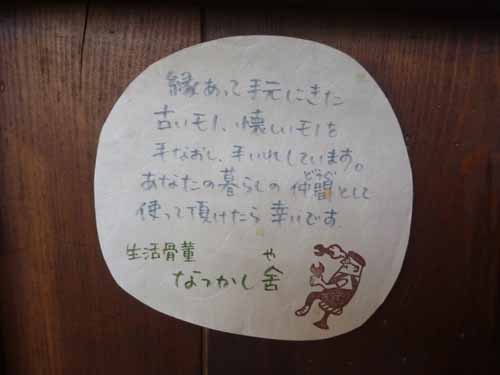 縁あって手元にきた
古いモノ、懐しいモノを
手なおし、手いれしています。
あなたの暮らしの仲間として
使って頂けたら幸いです
生活骨董
なつかし舎
や